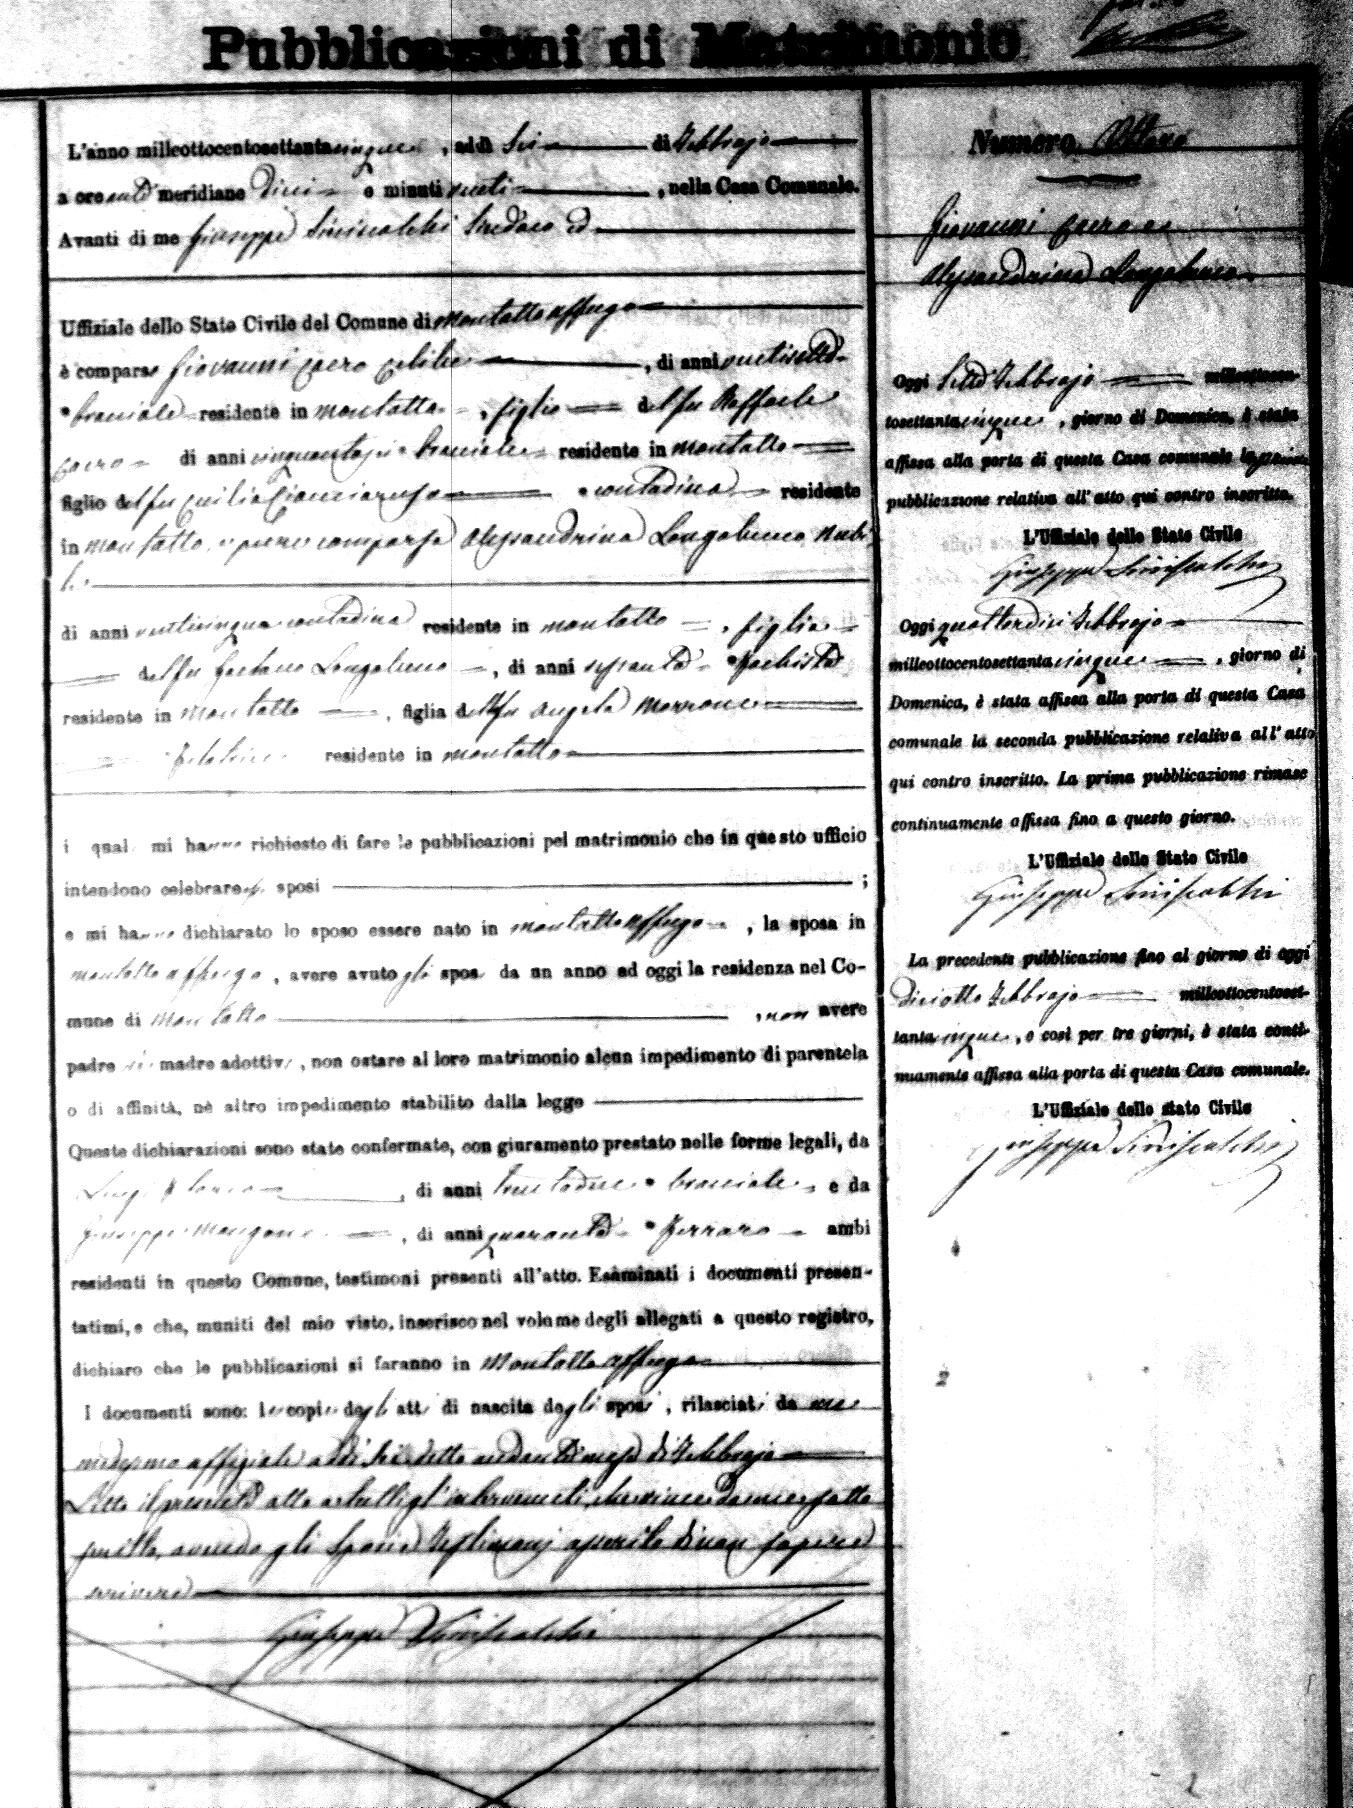 Pubblicazioni di Matrimonio
L'anno milleottocentosettantacinque, addì Sei di Febbrajo
a ore ante meridiane Dieci e minuti venti, nella Casa Comunale.
Avanti di me Giuseppe Siniscalchi Sindaco ed
Uffiziale dello Stato Civile del Comune di Montalto Uffugo
è comparso Giovanni Caero Celibe, di anni ventisette
bracciale residente in Montalto, figlio del fu Raffaele
Caero di anni bracciale residente in Montalto
figlio del fu contadina residente
in Montalto, e pure comparsa Alessandrina Longobucco Nubi
le
di anni venticinque contadina residente in Montalto, figlia
del fu Gaetano Longobucco, di anni sessanta
residente in Montalto, figlia della fu Angela Morrone
filatrice residente in Montalto
i quali mi hanno richiesto di fare le pubblicazioni pel matrimonio che in questo ufficio
intendono celebrare gli sposi ;
e mi hanno dichiarato lo sposo essere nato in Montalto Uffugo, la sposa in
Montalto Uffugo, avere avuto gli sposi da un anno ad oggi la residenza nel Co-
mune di Montalto, non avere
padre nè madre adottivi, non ostare al loro matrimonio alcun impedimento di parentela
o di affinità, nè altro impedimento stabilito dalla legge
Queste dichiarazioni sono state confermate, con giuramento prestato nelle forme legali, da
Luigi, di anni trentadue bracciale e da
Giuseppe Mangone, di anni quaranta Ferraro ambi
residenti in questo Comune, testimoni presenti all'atto. Esaminati i documenti presen-
tatimi, e che, muniti del mio visto, inserisco nel volume degli allegati a questo registro,
dichiaro che le pubblicazioni si faranno in Montalto Uffugo
I documenti sono: le copie degli atti di nascita degli sposi, rilasciati da me
medesimo uffiziale addì sei dello andante mese di Febbrajo
Letto il presente atto a tutti gl'intervenuti, che viene da me sotto
scritto, avendo gli Sposi e Testimonj asserito di non sapere
scrivere
Giuseppe Siniscalchi
Numero Ottavo
Giovanni Caero ed
Alessandrina Longobucco
Oggi Sette Febbrajo millottocen-
tosettantacinque, giorno di Domenica, è stata
affissa alla porta di questa Casa comunale la prima
pubblicazione relativa all'atto qui contro inscritto.
L'Uffiziale dello Stato Civile
Giuseppe Siniscalchi
Oggi quattordici Febbrajo
milleottocentosettantacinque, giorno di
Domenica, è stata affissa alla porta di questa Casa
comunale la seconda pubblicazione relativa all'atto
qui contro inscritto. La prima pubblicazione rimase
continuamente affissa fino a questo giorno.
L'Uffiziale dello Stato Civile
Giuseppe Siniscalchi
La precedente pubblicazione fino al giorno di oggi
diciotto Febbrajo milleottocentoset-
tantacinque, e così per tre giorni, è stata conti-
nuamente affissa alla porta di questa Casa comunale.
L'Uffiziale dello stato Civile
Giuseppe Siniscalchi